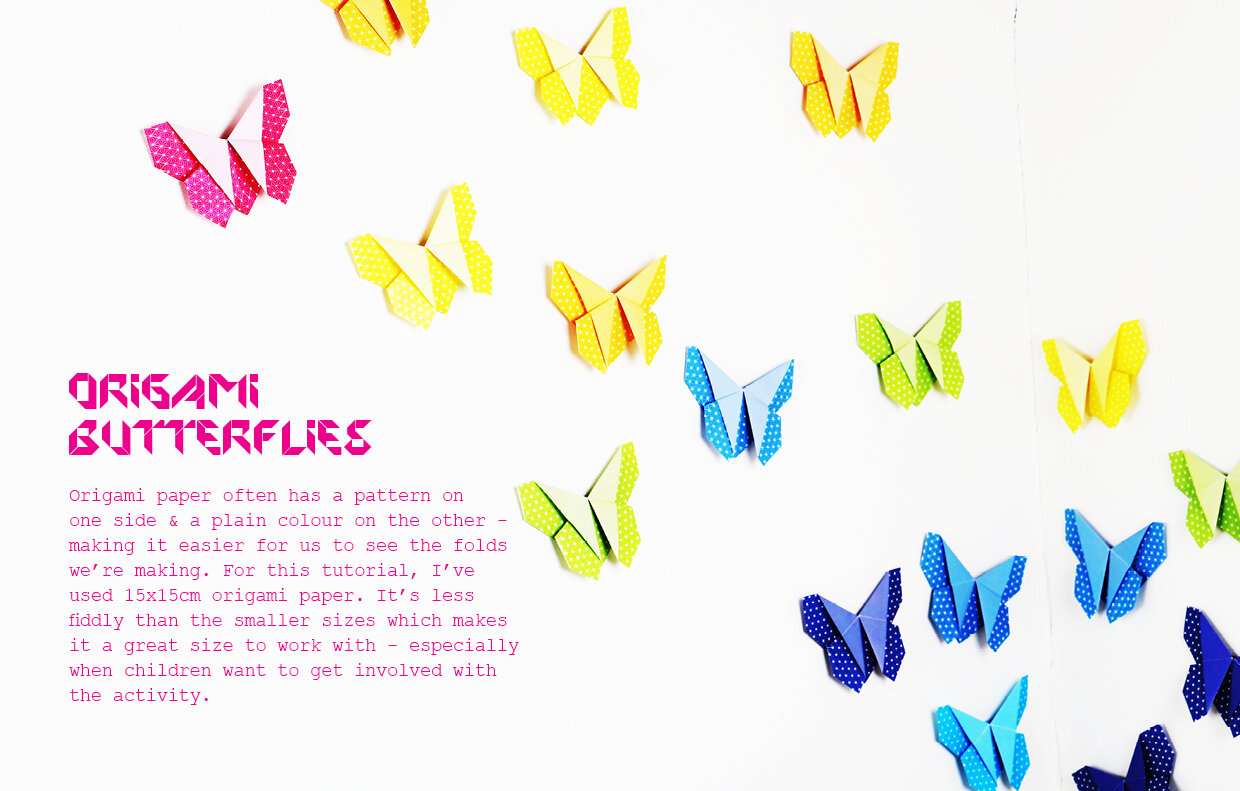 ORIGAMI
BUTTERFLIES
Origami paper often has a pattern on
one side & a plain colour on the other –
making it easier for us to see the folds
we’re making. For this tutorial, I’ve
used 15x15cm origami paper. It’s less
fiddly than the smaller sizes which makes
it a great size to work with – especially
when children want to get involved with
the activity.